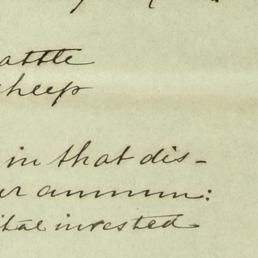 attle
heep
in that dis-
er annum:
ital invested